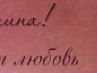 шина!
т любовь